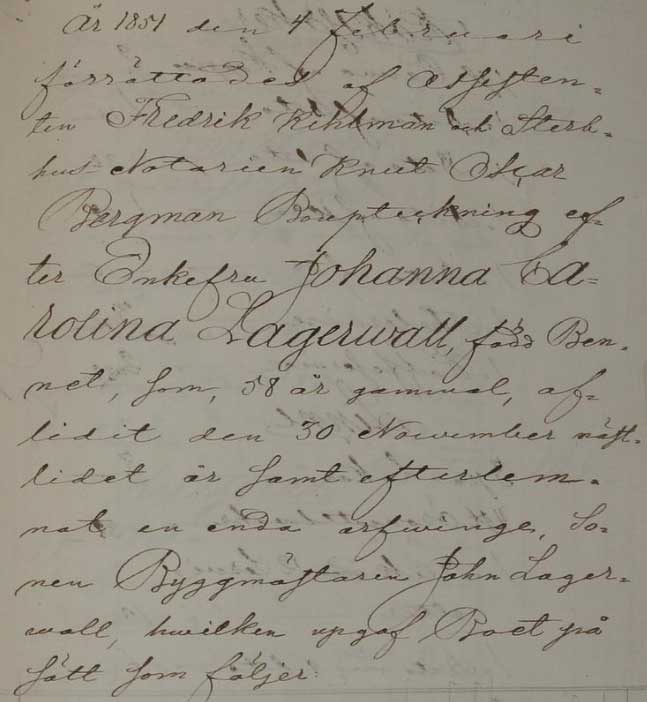 År 1851 den 4 Februari
förrättades af Assisten-
ten Fredrik Kihlman och Sterb-
hus Notarien Knut Oskar
Bergman Bouptekning ef-
ter Enkefru Johanna Ca-
rolina Lagerwall, född Ben-
net, som, 58 år gammal, af-
lidit den 30 November näst-
lidet år samt efterlem-
nat en enda arfwinge, So-
nen Byggmästaren John Lager-
wall, hwilken upgaf Boet på
sätt som följer